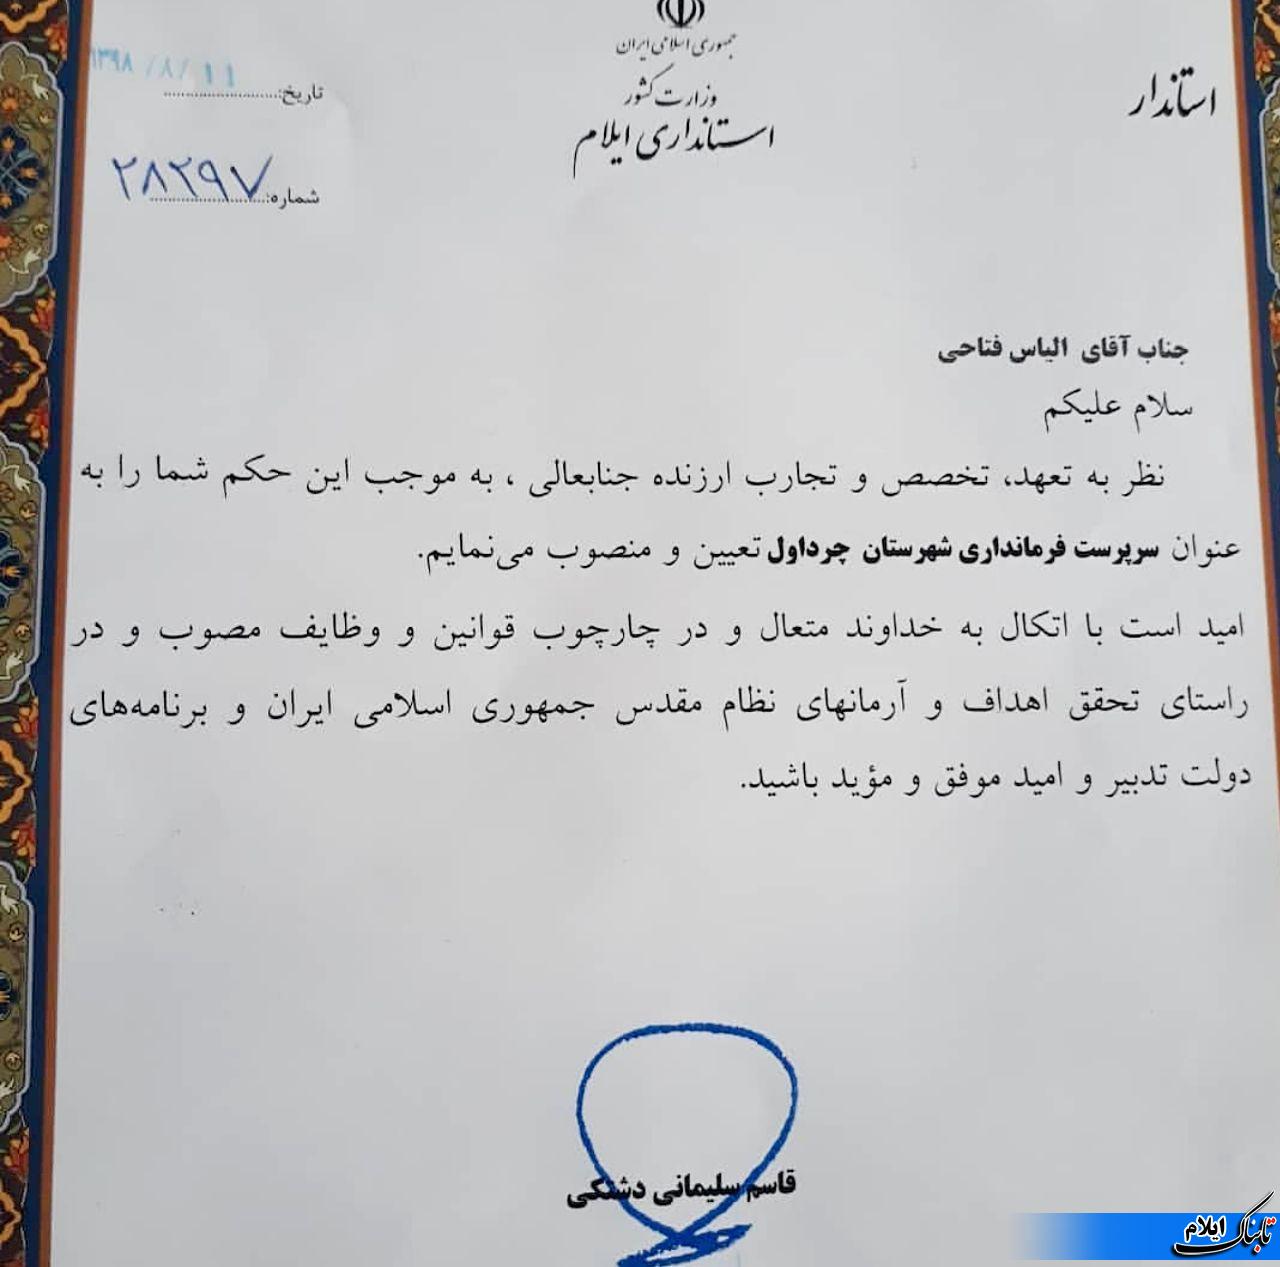 جمهوری اسلامی ایران
وزارت کشور
استانداری ایلام
استاندار
تاریخ: ۱۳۹۸/۸/۱۱
شماره: ۲۸۲۹۷
جناب آقای الیاس فتاحی
سلام علیکم
نظر به تعهد، تخصص و تجارب ارزنده جنابعالی ، به موجب این حکم شما را به
عنوان سرپرست فرمانداری شهرستان چرداول تعیین و منصوب می‌نمایم.
امید است با اتکال به خداوند متعال و در چارچوب قوانین و وظایف مصوب و در
راستای تحقق اهداف و آرمانهای نظام مقدس جمهوری اسلامی ایران و برنامه‌های
دولت تدبیر و امید موفق و مؤید باشید.
قاسم سلیمانی دشتکی
تابناک ایلام